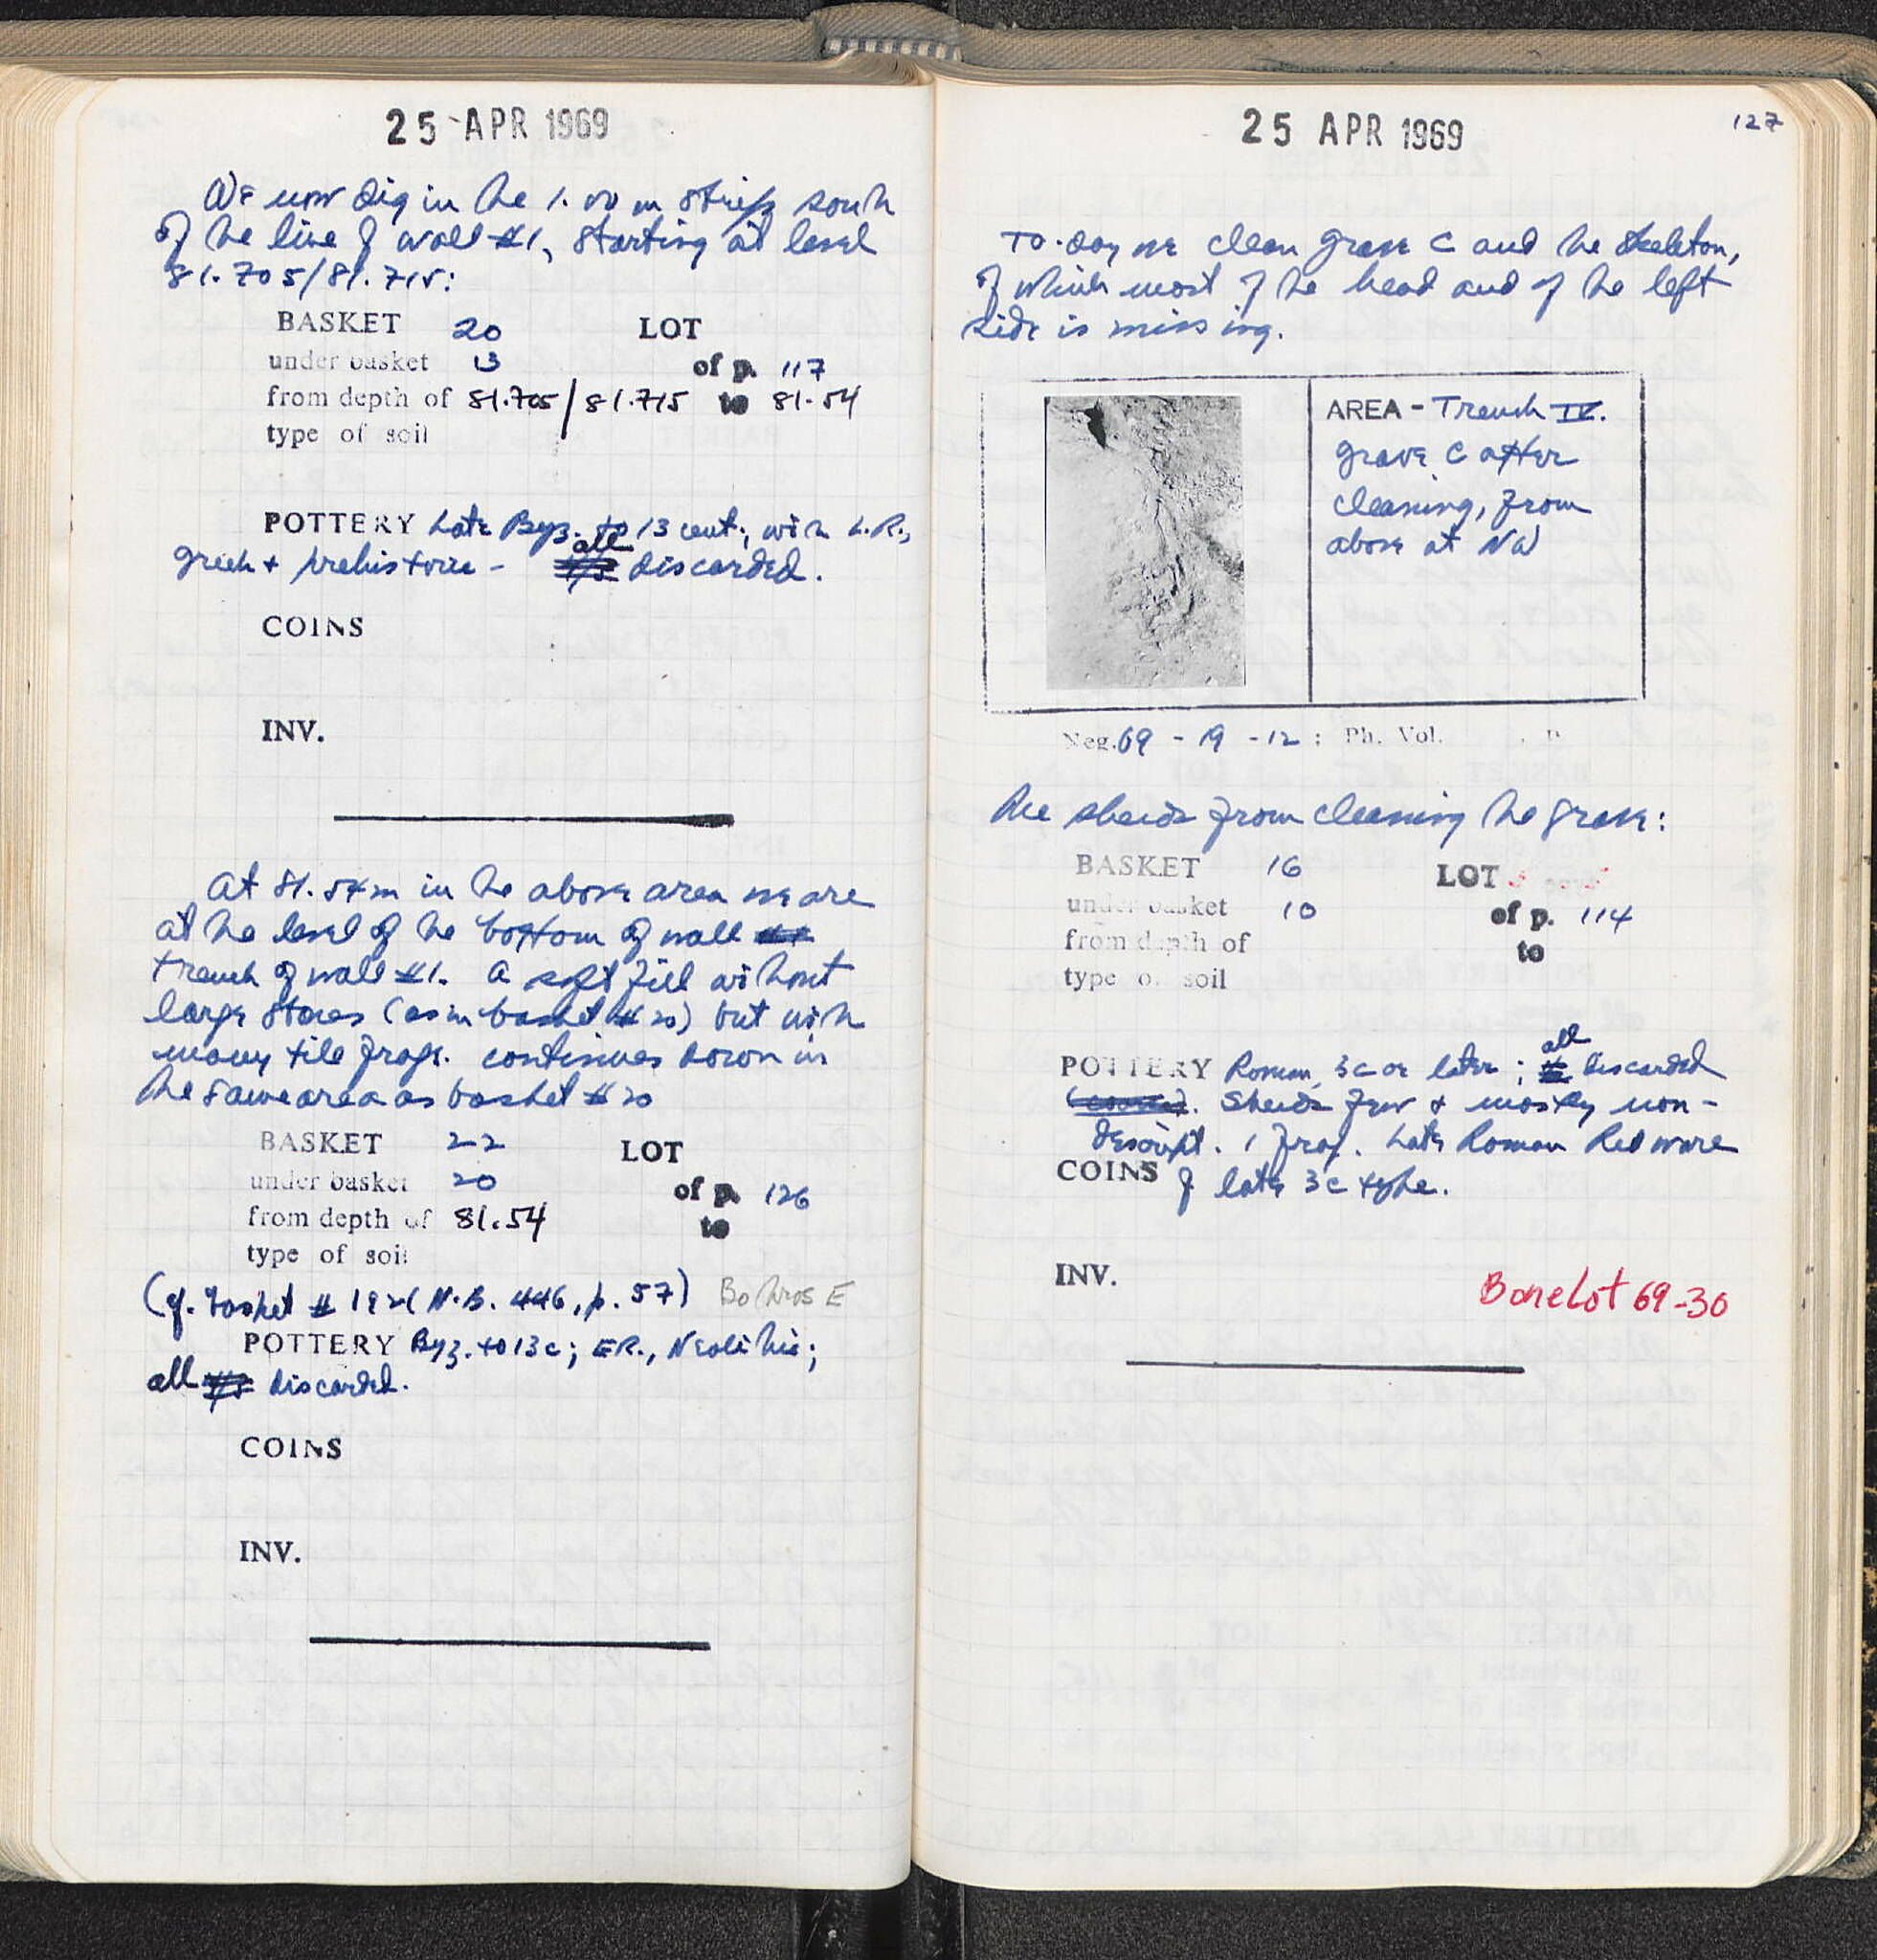 25 APR 1969
We now dig in the 1.00 m strip south
of the line of wall #1, starting at level
81.705/81.715:
BASKET 20 LOT
under basket 13 of p. 117
from depth of 81.705/81.715 to 81.54
type of soil
POTTERY Late Byz. to 13 cent., with L.R.,
all
Greek + prehistoric - discarded.
COINS
INV.
At 81.54 m in the above area we are
at the level of the bottom of wall
trench of wall #1. A soft fill without
large stones (as in basket #20) but with
many tile frags. continues down in
the same area as basket #20
BASKET 22 LOT
under basket 20 of p. 126
from depth of 81.54 to
type of soil
(cf. basket # 192 (N.B. 446, p. 57) Bothros E
POTTERY Byz. to 13 c; ER., Neolithic;
all discarded.
COINS
INV.
25 APR 1969 127
To-day we clean grave C and the skeleton,
of which most of the head and of the left
side is missing.
AREA - Trench IV.
Grave C after
cleaning, from
above at NW
Neg. 69 - 19 - 12 : Ph. Vol. , p
The sherds from cleaning the grave:
BASKET 16 LOT
under basket 10 of p. 114
from depth of to
type of soil
all
POTTERY Roman, 3c or later; discarded
Sherds few + mostly non-
descript. 1 frag. Late Roman Red ware
COINS of late 3c type.
INV.
Bone Lot 69-30